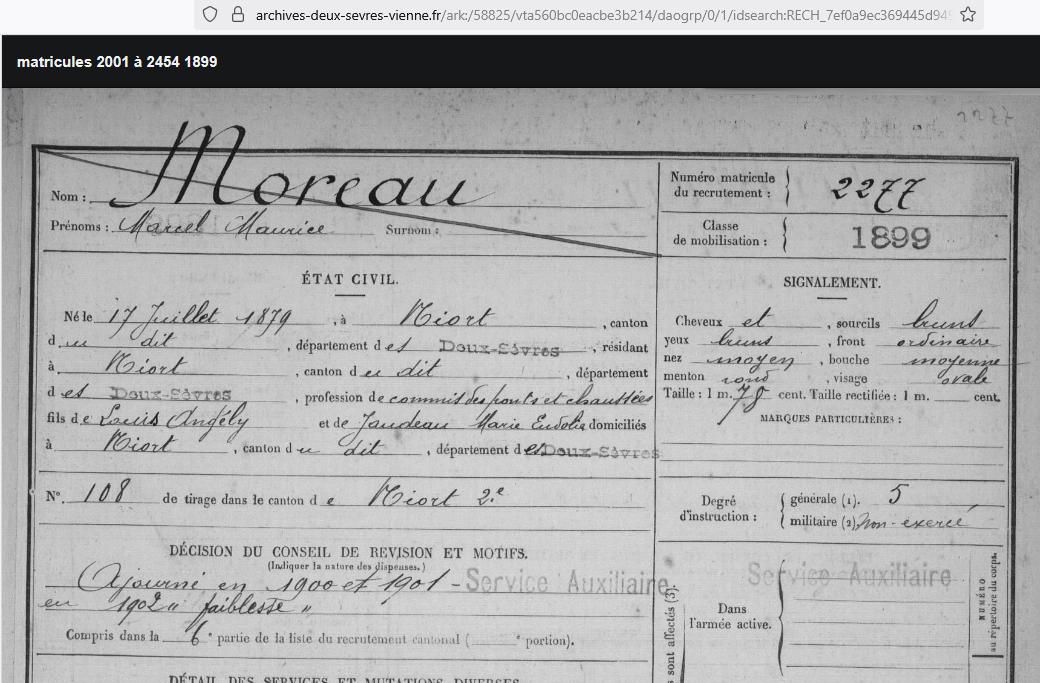 archives-deux-sevres-vienne.fr/ark:/58825/vta560bc0eacbe3b214/daogrp/0/1/idsearch:RECH_7ef0a9ec369445d94
matricules 2001 à 2454 1899
Nom : Moreau
Prénoms : Marcel Maurice Surnom :
Numéro matricule du recrutement : 2277
Classe de mobilisation : 1899
ÉTAT CIVIL.
Né le 17 Juillet 1879, à Niort, canton
du dit, département des Deux-Sèvres, résidant
à Niort, canton du dit, département
des Deux-Sèvres, profession de commis des ponts et chaussées
fils de Louis Angély et de Jaudeau Marie Eudolie domiciliés
à Niort, canton du dit, département des Deux-Sèvres
N°. 108 de tirage dans le canton de Niort 2.e
SIGNALEMENT.
Cheveux et, sourcils bruns
yeux bruns, front ordinaire
nez moyen, bouche moyenne
menton rond, visage ovale
Taille : 1 m. 78 cent. Taille rectifiée : 1 m. cent.
MARQUES PARTICULIÈRES :
Degré d'instruction : générale (1). 5
militaire (2) Non-exercé
DÉCISION DU CONSEIL DE REVISION ET MOTIFS.
(Indiquer la nature des dispenses.)
Ajourné en 1900 et 1901 - Service Auxiliaire
en 1902 " faiblesse "
Compris dans la 6e partie de la liste du recrutement cantonal ( e portion).
DÉTAIL DES SERVICES ET MUTATIONS DIVERSES
Service Auxiliaire
Dans l'armée active.
sont affectés (3).
NUMÉRO
au répertoire du corps.